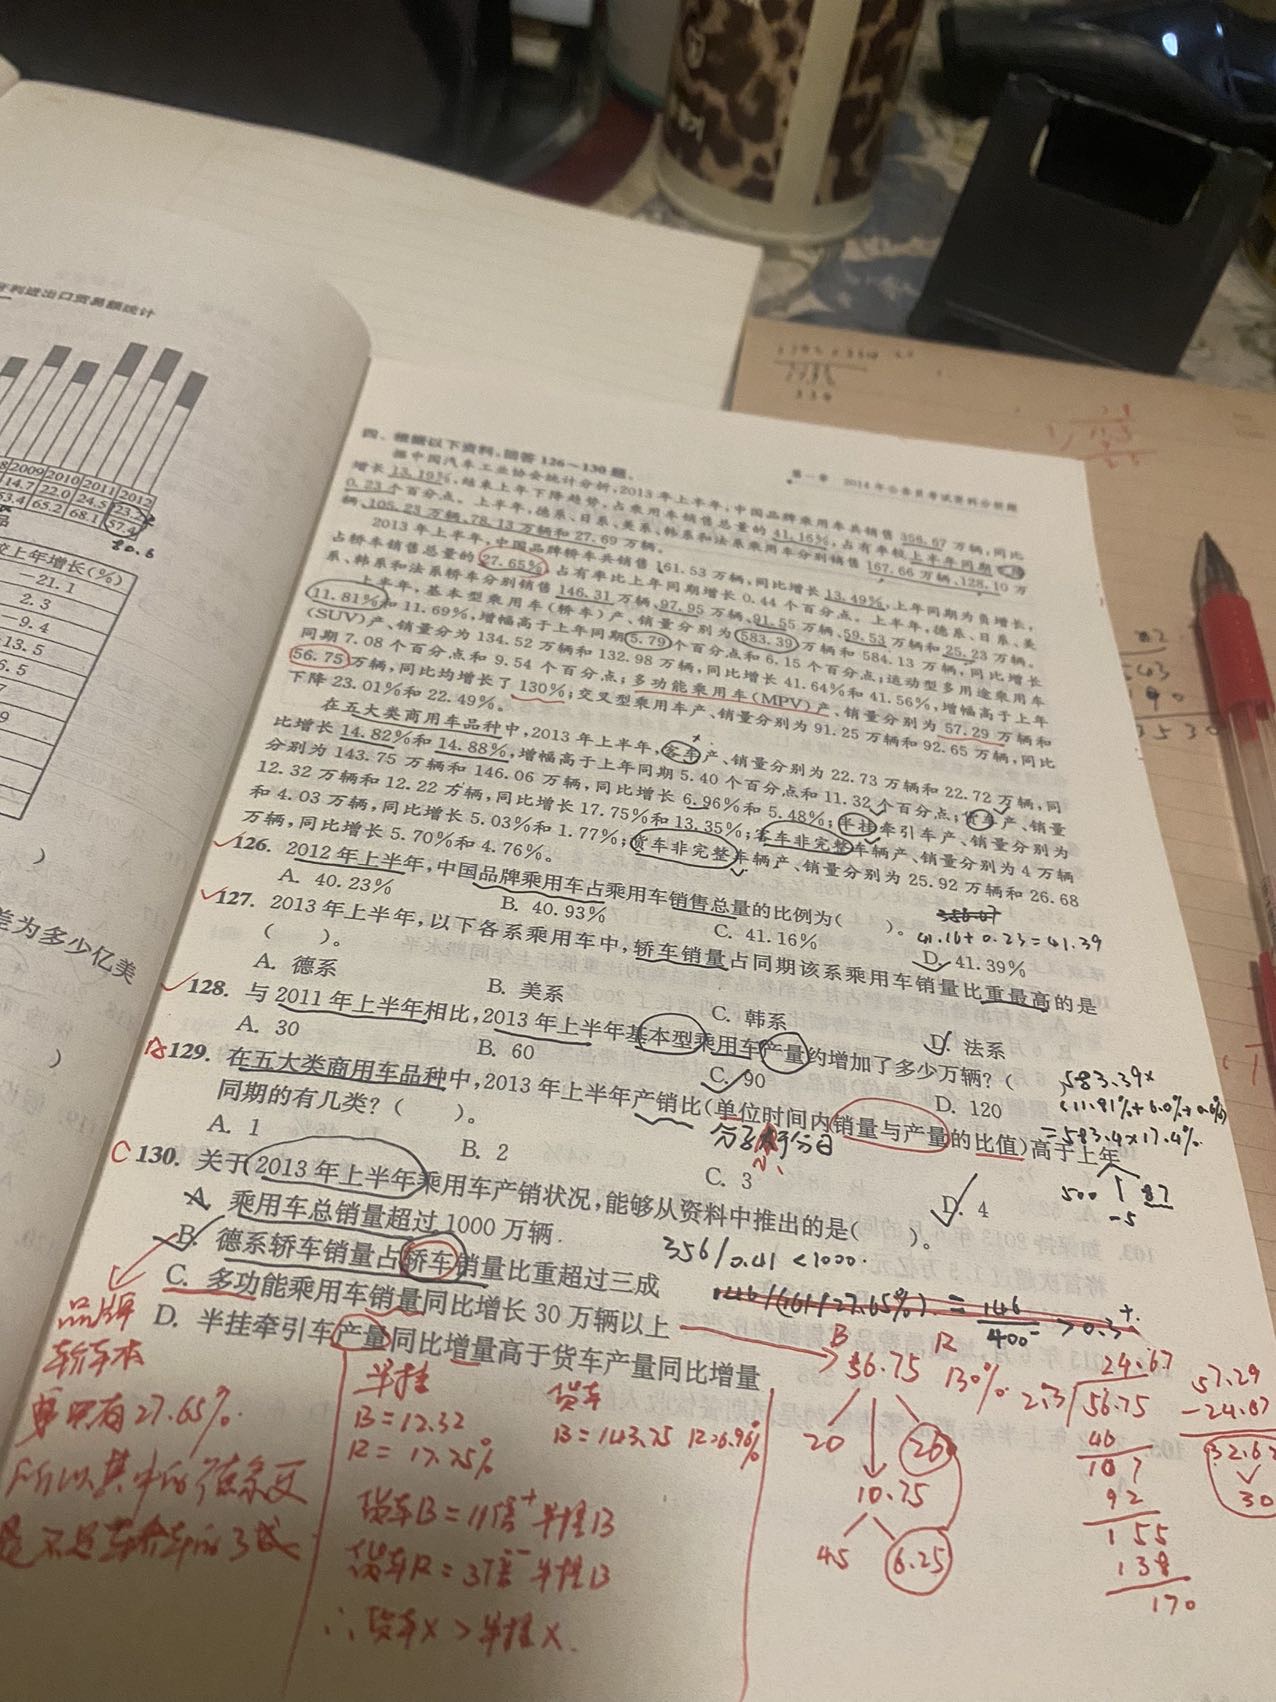 牙利进出口贸易额统计
2009 2010 2011 2012
14.7 22.0 24.5 23.2
53.4 65.2 68.1 57.4
80.6
较上年增长(%)
-21.1
2.3
-9.4
-13.5
差为多少亿美
第一章 2014年公务员考试资料分析题
四、根据以下资料,回答126～130题。
据中国汽车工业协会统计分析,2013年上半年,中国品牌乘用车共销售356.67万辆,同比
增长13.19%,结束上年下降趋势,占乘用车销售总量的41.16%,占有率较上年同期
0.23个百分点。上半年,德系、日系、美系、韩系和法系乘用车分别销售167.66万辆、128.10万
辆、105.23万辆、78.13万辆和27.69万辆。
2013年上半年,中国品牌轿车共销售161.53万辆,同比增长13.49%,上年同期为负增长,
占轿车销售总量的27.65%,占有率比上年同期增长0.44个百分点。上半年,德系、日系、美
系、韩系和法系轿车分别销售146.31万辆、97.95万辆、91.55万辆、59.53万辆和25.23万辆。
上半年,基本型乘用车(轿车)产、销量分别为583.39万辆和584.13万辆,同比增长
11.81%和11.69%,增幅高于上年同期5.79个百分点和6.15个百分点;运动型多用途乘用车
(SUV)产、销量分为134.52万辆和132.98万辆,同比增长41.64%和41.56%,增幅高于上年
同期7.08个百分点和9.54个百分点;多功能乘用车(MPV)产、销量分别为57.29万辆和
56.75万辆,同比均增长了130%;交叉型乘用车产、销量分别为91.25万辆和92.65万辆,同比
下降23.01%和22.49%。
在五大类商用车品种中,2013年上半年,客车产、销量分别为22.73万辆和22.72万辆,同
比增长14.82%和14.88%,增幅高于上年同期5.40个百分点和11.32个百分点;货车产、销量
分别为143.75万辆和146.06万辆,同比增长6.96%和5.48%;半挂牵引车产、销量分别为
12.32万辆和12.22万辆,同比增长17.75%和13.35%;客车非完整车辆产、销量分别为4万辆
和4.03万辆,同比增长5.03%和1.77%;货车非完整车辆产、销量分别为25.92万辆和26.68
万辆,同比增长5.70%和4.76%。
126. 2012年上半年,中国品牌乘用车占乘用车销售总量的比例为( )。
356.67
41.16+0.23=41.39
A. 40.23% B. 40.93% C. 41.16% D. 41.39%
127. 2013年上半年,以下各系乘用车中,轿车销量占同期该系乘用车销量比重最高的是
( )。
A. 德系 B. 美系 C. 韩系 D. 法系
128. 与2011年上半年相比,2013年上半年基本型乘用车产量约增加了多少万辆?( )
A. 30 B. 60 C. 90 D. 120
583.39×
(11.81%+6.0%+0.6%)
=583.4×17.4%
500 87
-5
129. 在五大类商用车品种中,2013年上半年产销比(单位时间内销量与产量的比值)高于上年
同期的有几类?( )。
A. 1 B. 2 C. 3 D. 4
C 130. 关于2013年上半年乘用车产销状况,能够从资料中推出的是( )。
A. 乘用车总销量超过1000万辆
356/0.41 <1000.
B. 德系轿车销量占轿车销量比重超过三成
146/(161/27.65%) = 146/400 >0.3
C. 多功能乘用车销量同比增长30万辆以上
D. 半挂牵引车产量同比增量高于货车产量同比增量
品牌
轿车本
只有27.65%.
半挂
B=12.32
R=17.75%
货车
B=143.75 R=6.96%
货车B=11倍+半挂B
∴货车X>半挂X.
B R
56.75 130%
20 26
10.75
45 6.25
24.67
2.3 56.75
46
107
92
155
138
170
57.29
-24.67
32.62
30